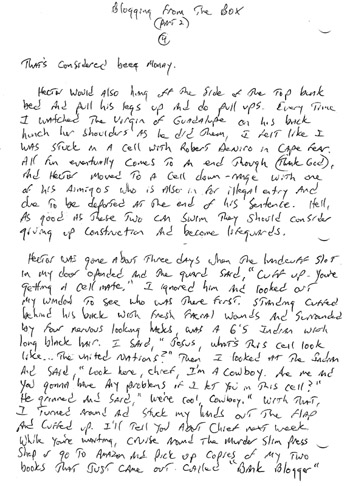 Blogging From The Box
(Part 2)
④
That's considered being Money.
Hector would also hing off the side of the top bunk
bed and pull his legs up and do pull ups. Every Time
I watched the Virgin of Guadalupe on his back
hunch her shoulders as he did them, I felt like I
was stuck in a cell with Robert Deniro in Cape Fear.
All fun eventually comes to an end though (Thank God),
and Hector moved to a cell down-range with one
of his Aimigos who is also in for illegal entry and
due to be deported at the end of his sentence. Hell,
as good as these two can swim they should consider
giving up construction and become lifeguards.
Hector was gone about three days when the handcuff slot
in my door opended and the guard said, "Cuff up. You're
getting a cell mate." I ignored him and looked out
my window to see who was there first. Standing cuffed
behind his back with fresh facial wounds and surrounded
by four nervous looking hacks, was a 6'5 Indian with
long black hair. I said, "Jesus, what's this cell look
like... The United Nations?" Then I looked at the Indian
and said, "Look here, chief, I'm a Cowboy. Are me and
you gonna have any problems if I let you in this cell?"
He grinned and said, "we're cool, Cowboy." With that,
I turned around and stuck my hands out the flap
and cuffed up. I'll tell you about Chief next week.
While you're waiting, cruise around the Murder Slim Press
Shop & go to Amazon and pick up copies of my two
books that just came out called "Bank Blogger"